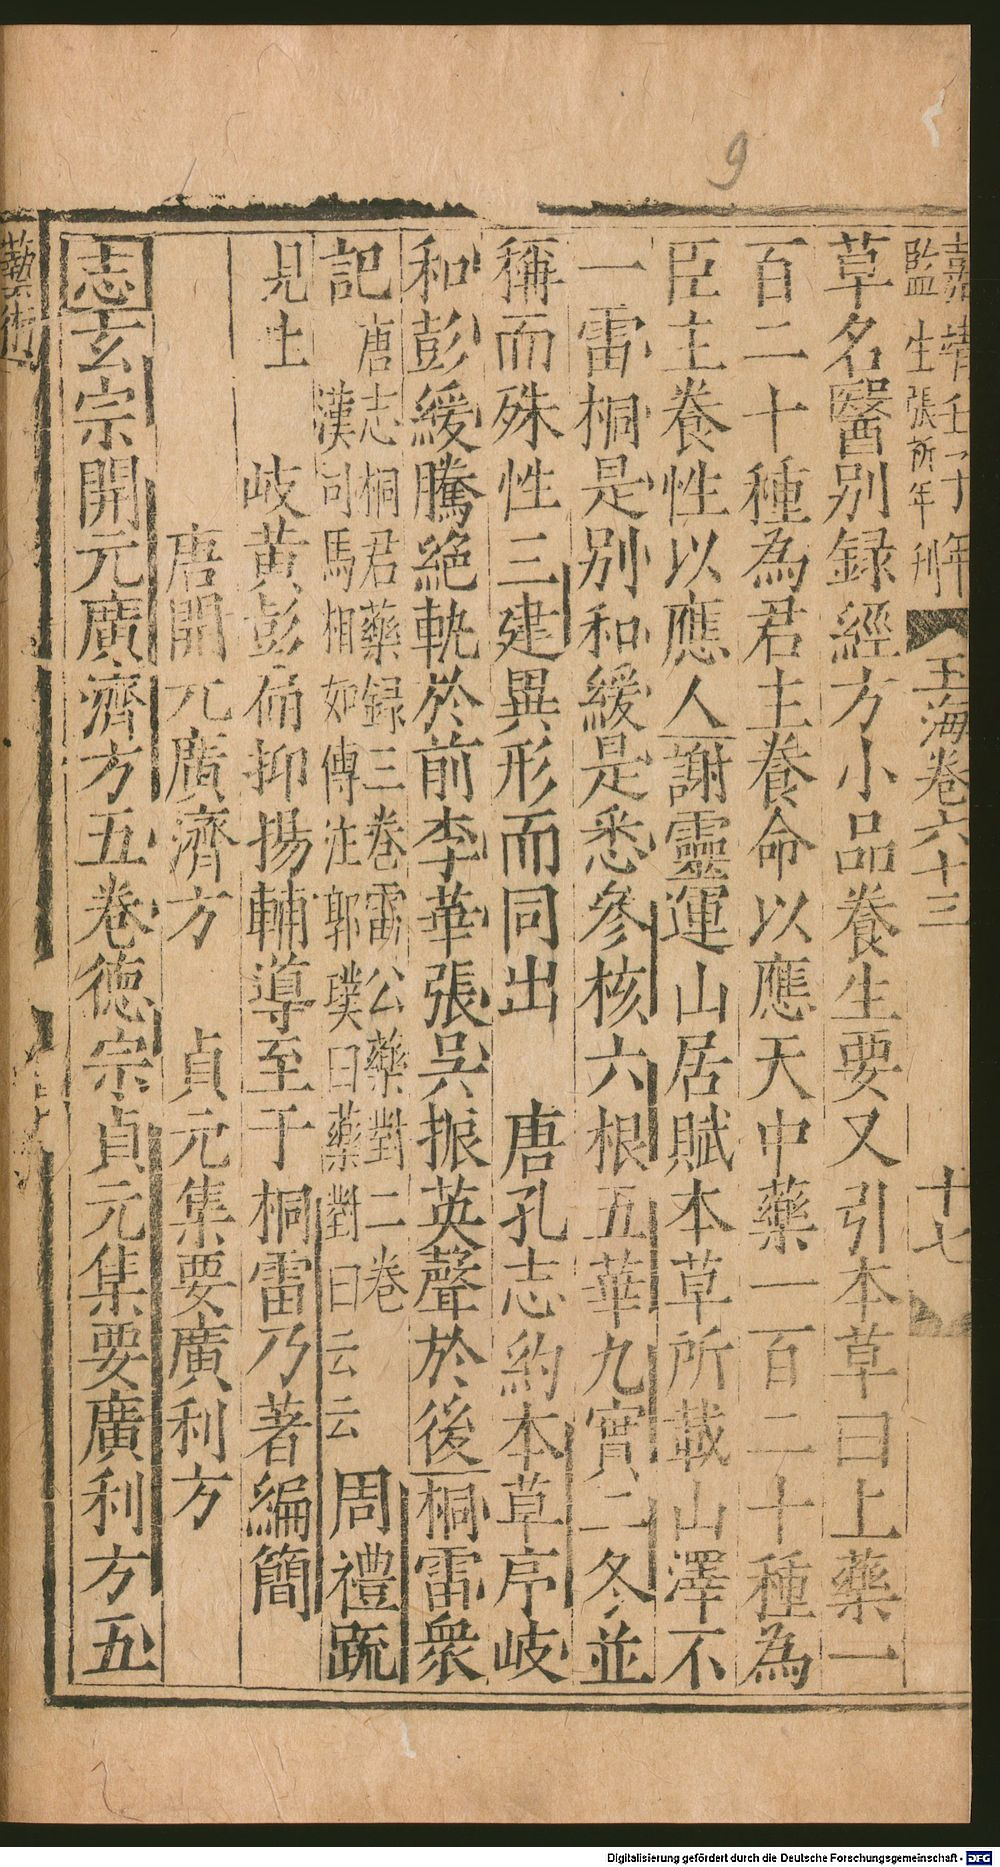 嘉靖壬子年
監生張所年刊
玉海卷六十三
十七
草名醫別録經方小品養生要又引本草曰上藥一
百二十種為君主養命以應天中藥一百二十種為
臣主養性以應人謝靈運山居賦本草所載山澤不
一雷桐是别和緩是悉參核六根五華九實二冬並
稱而殊性三建異形而同出
唐孔志約本草序岐
和彭緩騰絶軌於前李華張吳振英聲於後桐雷衆
記
唐志桐君藥録三卷雷公藥對二卷
漢司馬相如傳注郭璞曰藥對曰云云
周禮䟽
見上
岐黄彭扁抑揚輔導至于桐雷乃著編簡
唐開元廣濟方
貞元集要廣利方
志玄宗開元廣濟方五卷德宗貞元集要廣利方五
藝術
9
Digitalisierung gefördert durch die Deutsche Forschungsgemeinschaft - DFG